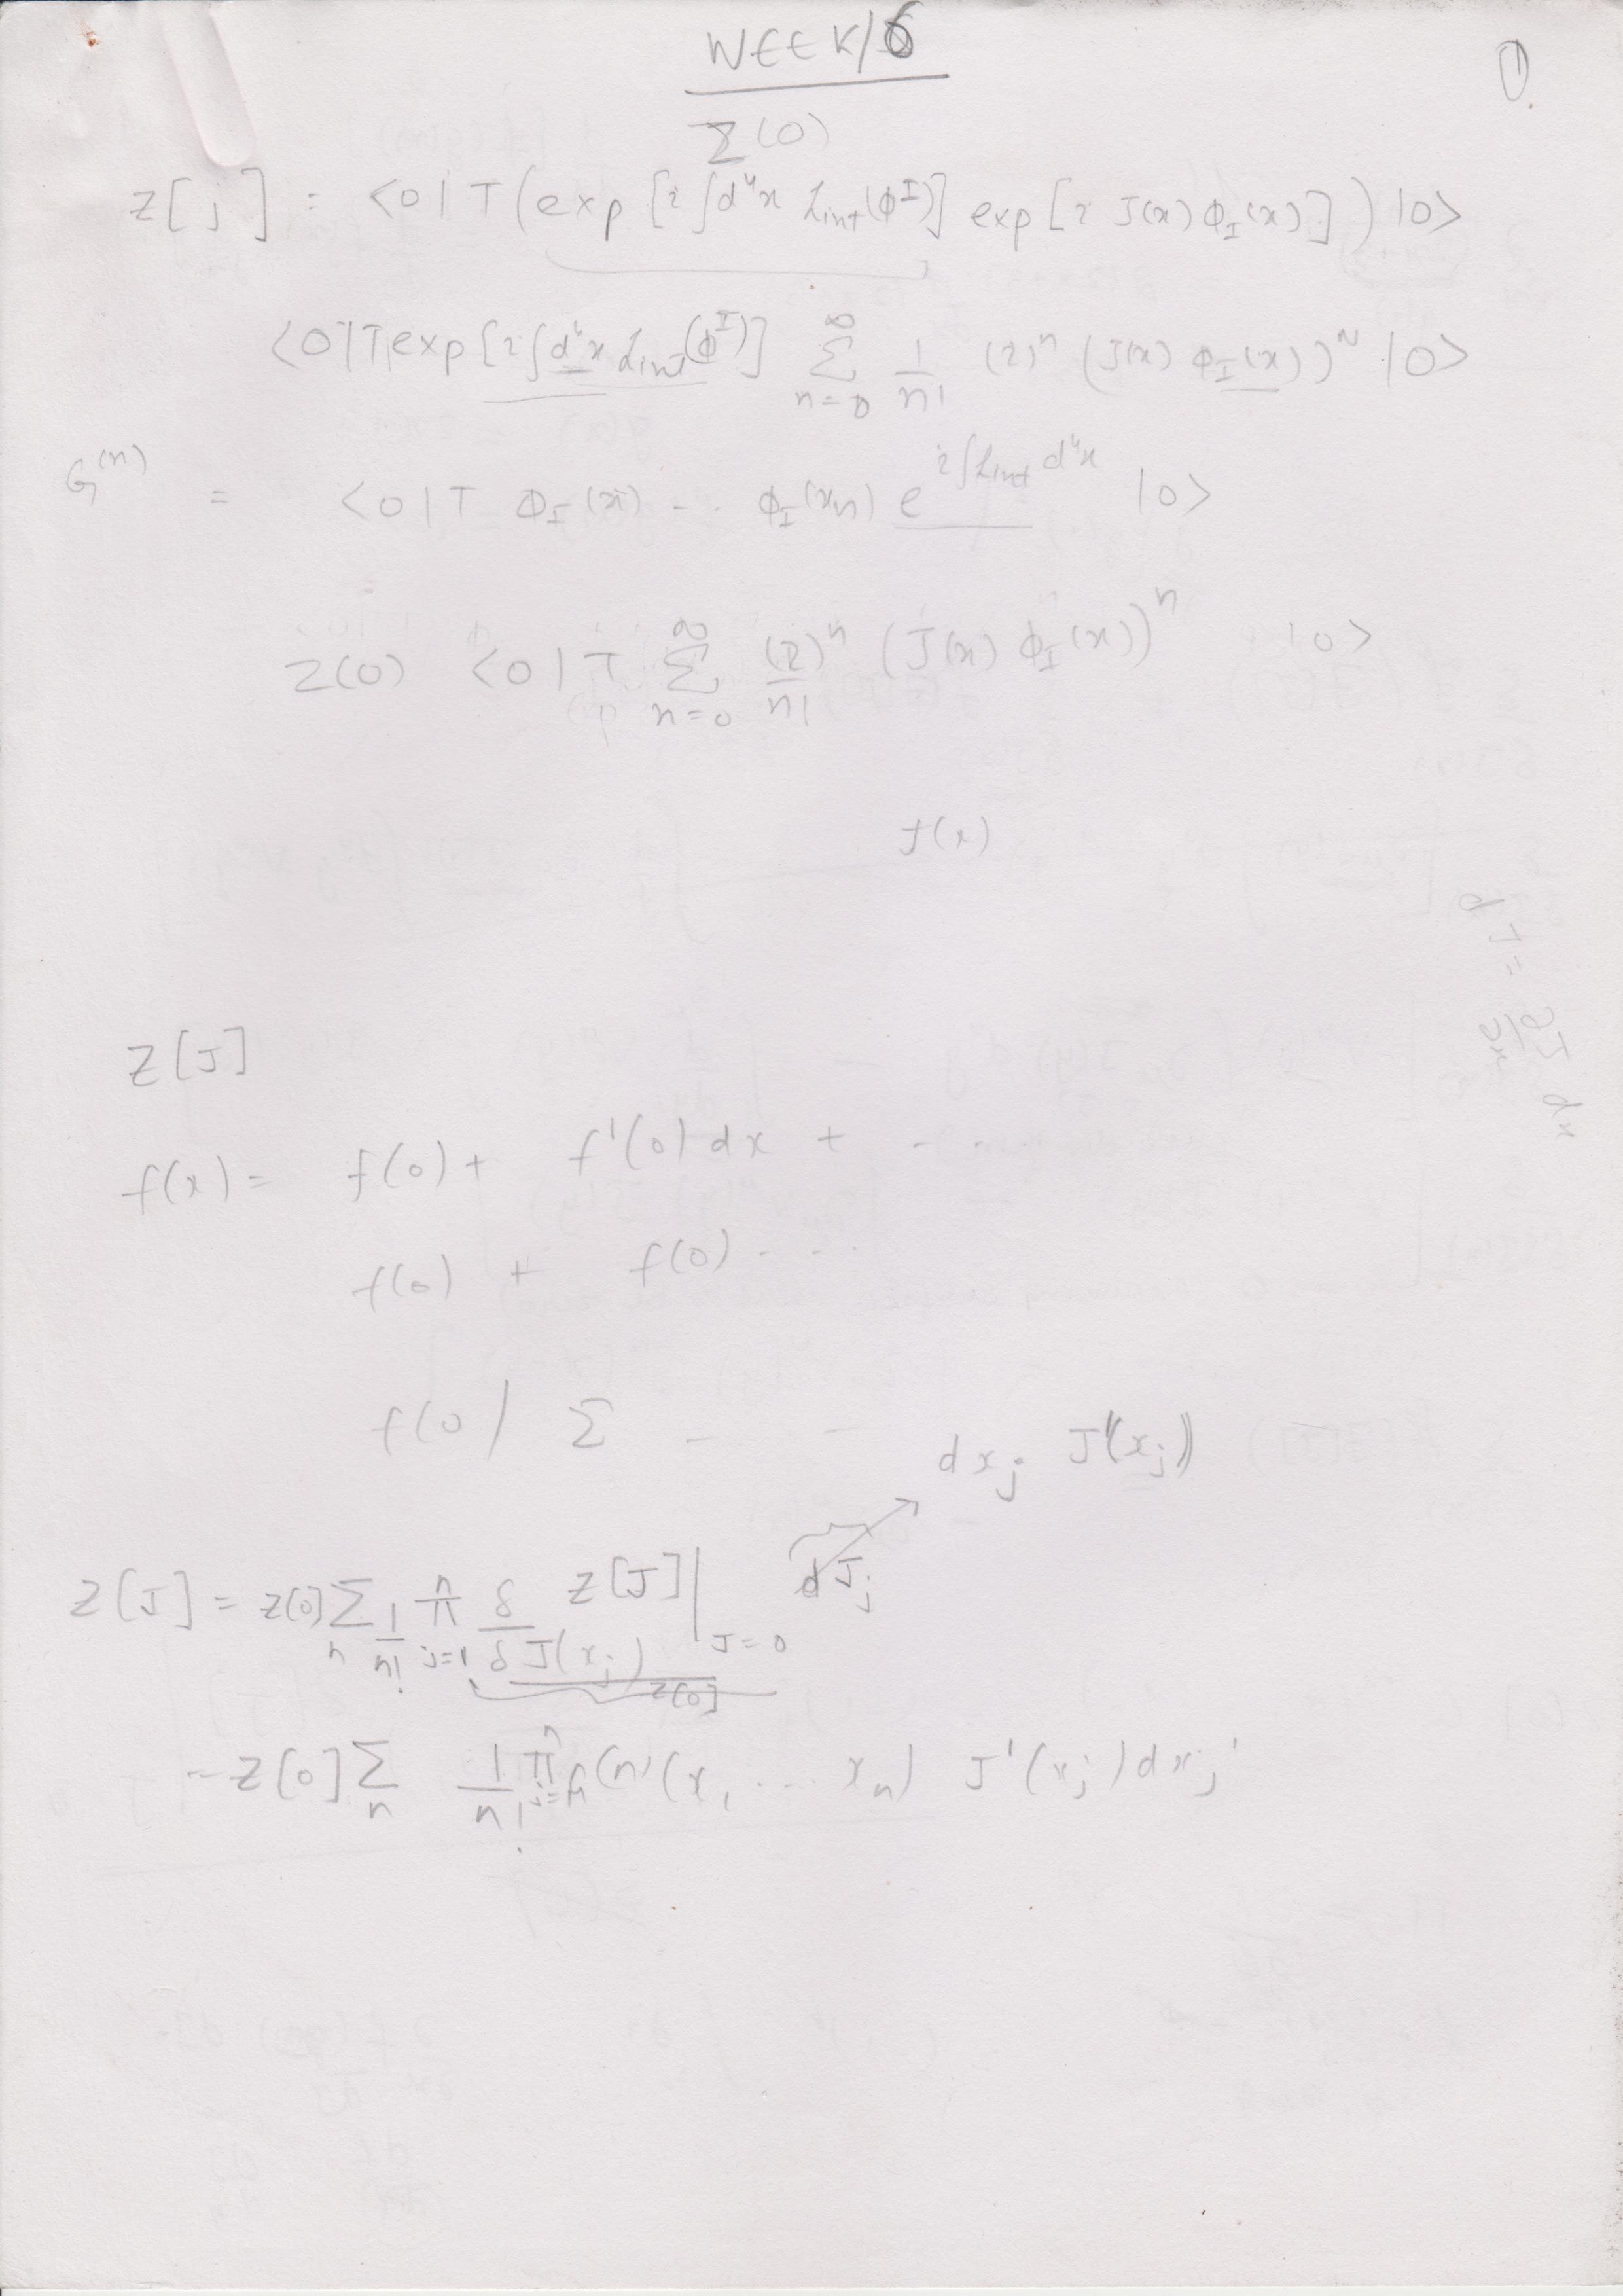 WEEK/6
1
Z(0)
Z[j] = <0|T(exp[i∫d⁴x L_int(ϕ^I)] exp[i J(x)ϕ_I(x)])|0>
<0|T exp[i∫d⁴x L_int(ϕ^I)] ∑_{n=0}^∞ 1/n! (i)^n (J(x) ϕ_I(x))^n |0>
G^(n) = <0|T ϕ_I(x) - .. ϕ_I(x_n) e^{i∫L_int d⁴x} |0>
Z(0) <0|T ∑_{n=0}^∞ (i)^n/n! (J(x) ϕ_I(x))^n |0>
J(x)
dJ = ∂J/∂x dx
Z[J]
f(x) = f(0) + f'(0)dx + - . - . .
f(0) + f(0) - - .
f(0) ∑ - -
dx_j J'(x_j)
Z[J] = Z[0] ∑_n 1/n! π_{j=1}^n δ/δJ(x_j) Z[J]|_{J=0} dJ_j
Z[0]
- Z[0] ∑_n 1/n! π^n G^(n)(x_1 ... x_n) J'(x_j) dx_j'